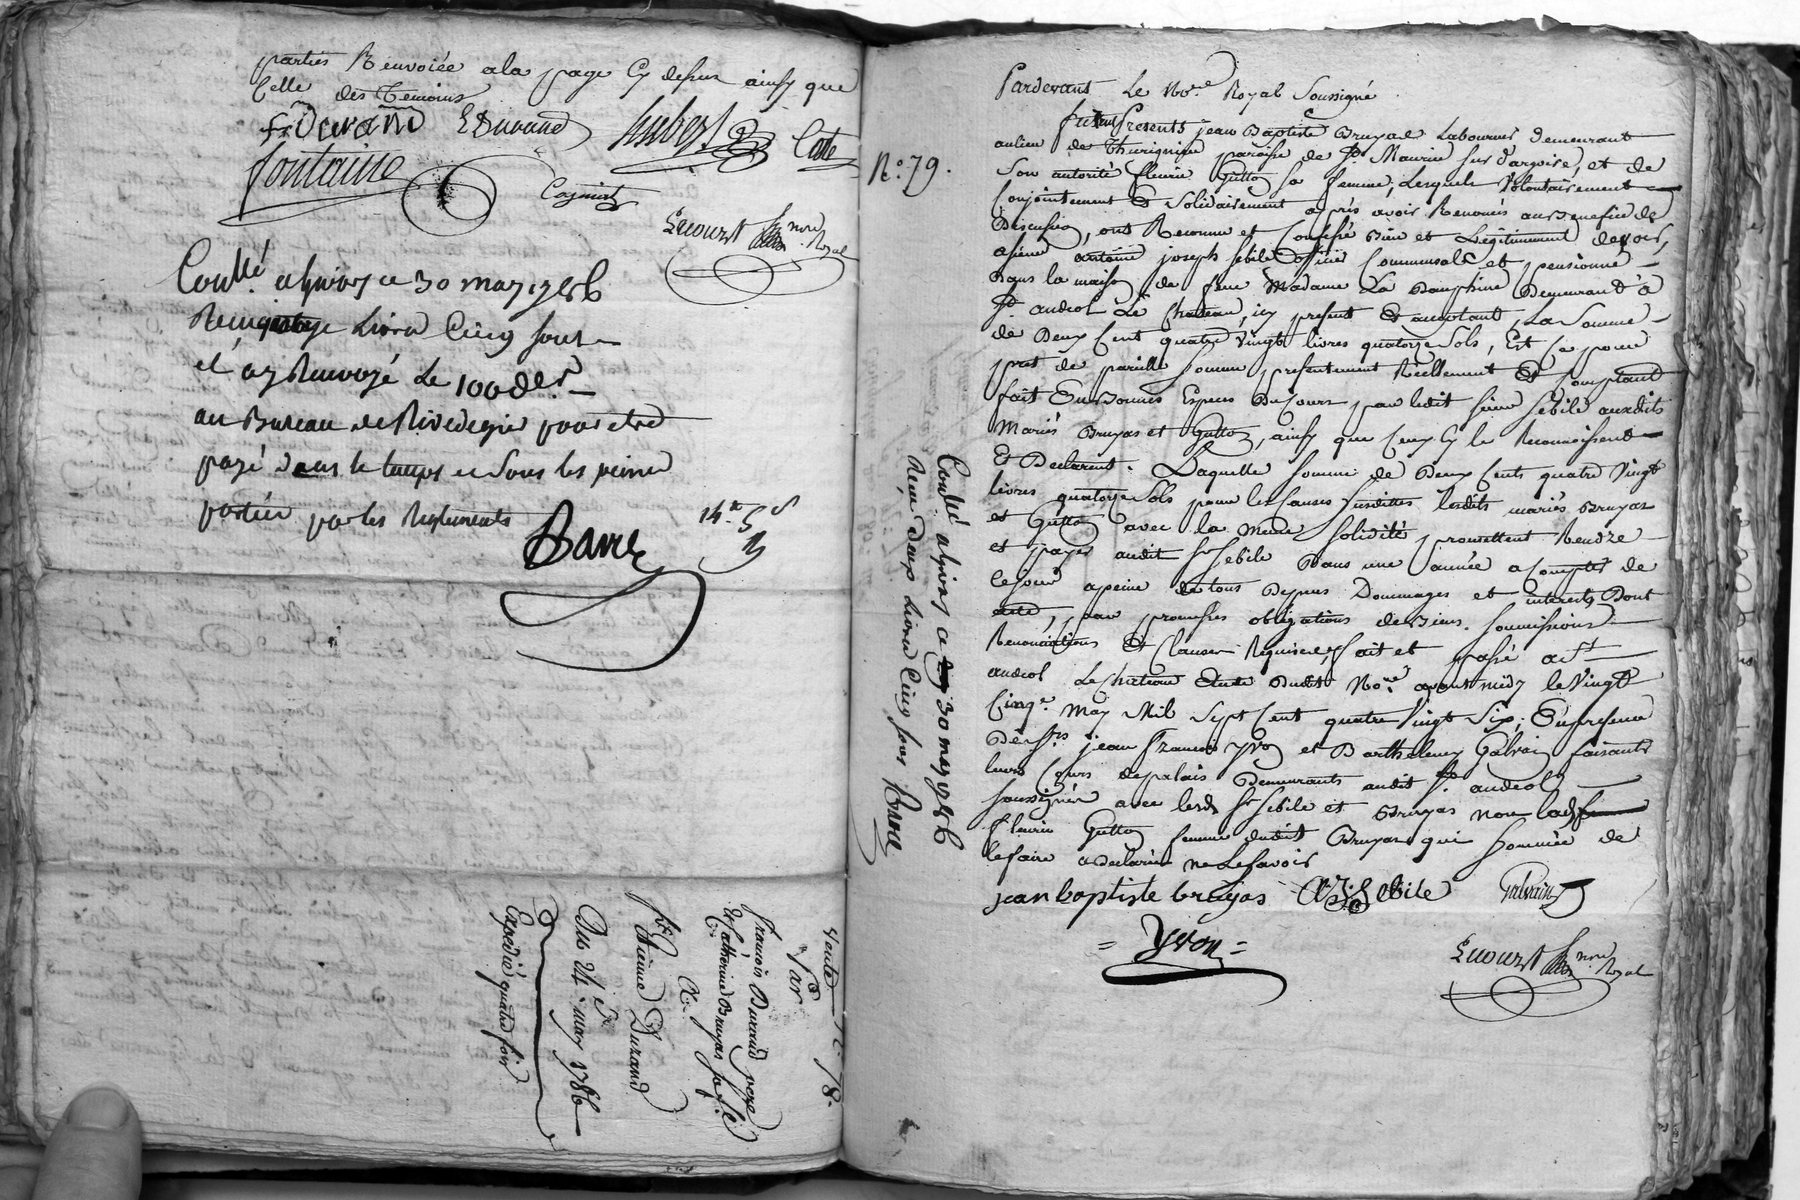 parties Renvoiée ala page Cy dessus ainsy que
Celle des Temoins
f: Durand E Durand hubert Coste
fontaine
Cognient
Lecourt nore Royal
Conllé. a givors ce 30 may 1786
Reçu Livres Cinq sous
et ay Renvoyé Le 100 der.
au Bureau de Rivedegier pour etre
payé dans le temps et sous les peines
portées par les Reglements
Barre
14tt 5s
Vente N.º 78.
Par
françois Durand pere
et Catherine Bruyas sa fe
A
sr Etienne Durand
Du 24e. may 1786
Expedié quatre fois
N.º 79.
Pardevant Le Nore. Royal Soussigné
furent Presents jean Baptiste Bruyas Laboureur demeurant
aulieu de Thurigneu paroisse de St Maurice sur dargoire, et de
Son autorité fleurie Gutton sa femme, Lesquels Volontairement
Conjointement et Solidairement après avoir Renoncés au Benefice de
Discussion, ont Reconnu et Confessé Bien et Legitimement devoir,
asieur antoine joseph Sebile officier Commensale et pensionné
Dans la maison de feue Madame La Dauphine Demeurant à
St andeol Le Chateau, icy present et acceptant La Somme
de Deux Cent quatre Vingt livres quatorze Sols, Est Ce pour
prest de pareille somme presentement Réellement et Comptant
fait En Bonnes Especes Du Cours par ledit sieur Sebile auxdits
mariés Bruyas et Gutton, ainsy que Ceux Cy le Reconnoissent
Et Declarent. Laquelle somme de Deux Cents quatre Vingt
livres quatorze Sols pour les Causes susdittes lesdits mariés Bruyas
et Gutton avec la meme solidité promettent Rendre
et payer audit Sr Sebile Dans une année a Compter de
Cejour apeine detous Depens Dommages et interests Dont
acte, par promesses obligations de Biens. soumissions
Renonciations et Clauses Requises, fait et passé a St
andeol LeChateau Etude Dudit Nore. avant midy le Vingt
Cinqe. may Mil Sept Cent quatre Vingt Six; En presence
De Srs jean francois yvon et Barthelemy Galvain faisants
leurs Cours depalais Demeurants audit St andeol
Soussignés avec lesds Sr Sebile et Bruyas non ladte
fleurie Gutton femme dudit Bruyas qui Sommée de
lefaire adeclaré ne Lesavoir
jean baptiste bruyas A: J: Sebile Galvain
= yvon =
Lecourt nore Royal
Conllé a givors ce 30 may 1786
Reçu deux Livres Cinq sous Barre